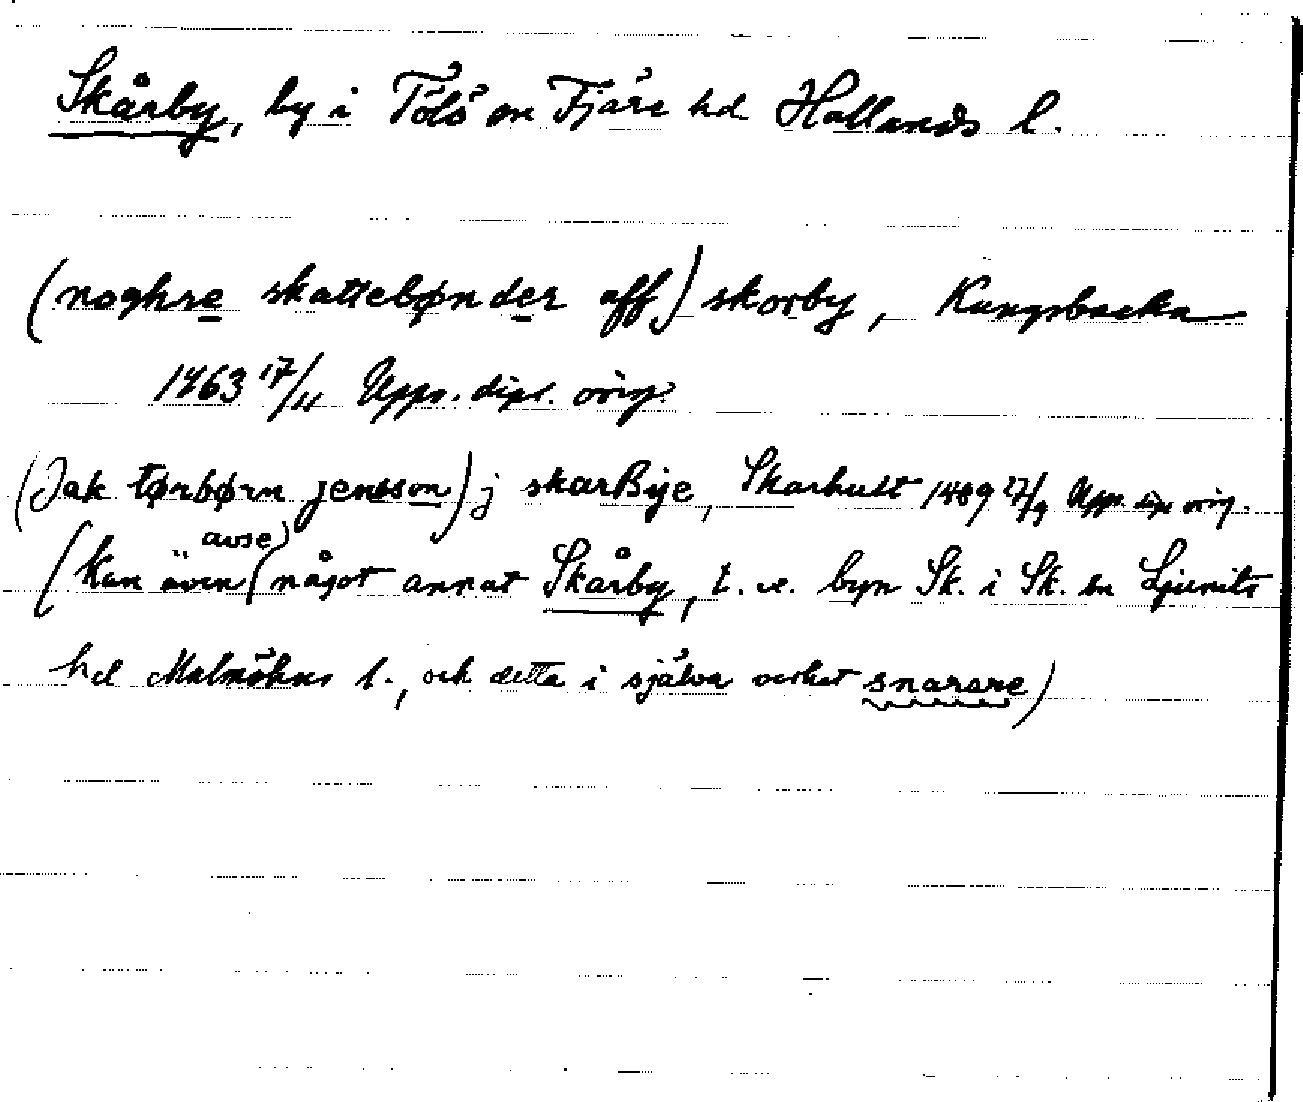 Skårby, by i Tölö sn Fjäre hd Hallands l.
(noghre skattebønder aff) skorby, Kungsbacka
1463 17/11 Upps. dipl. orig.
(Jak tørbørn jensson) j skarBye, Skarhult 1489 17/9 Upps. dipl. orig.
(Kan även (avse) något annat Skårby, t. ex. byn Sk. i Sk. sn Ljunits
hd Malmöhus l., och detta i själva verket snarare)